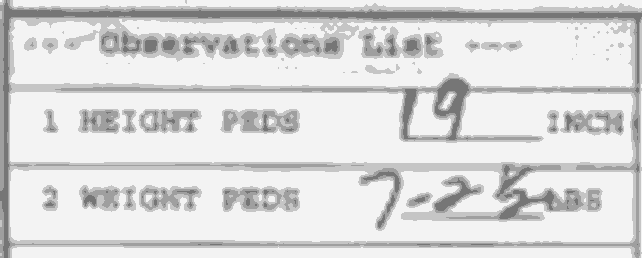 --- Observations List ---
1 HEIGHT PEDS 19 INCH
2 WEIGHT PEDS 7-25 LBS